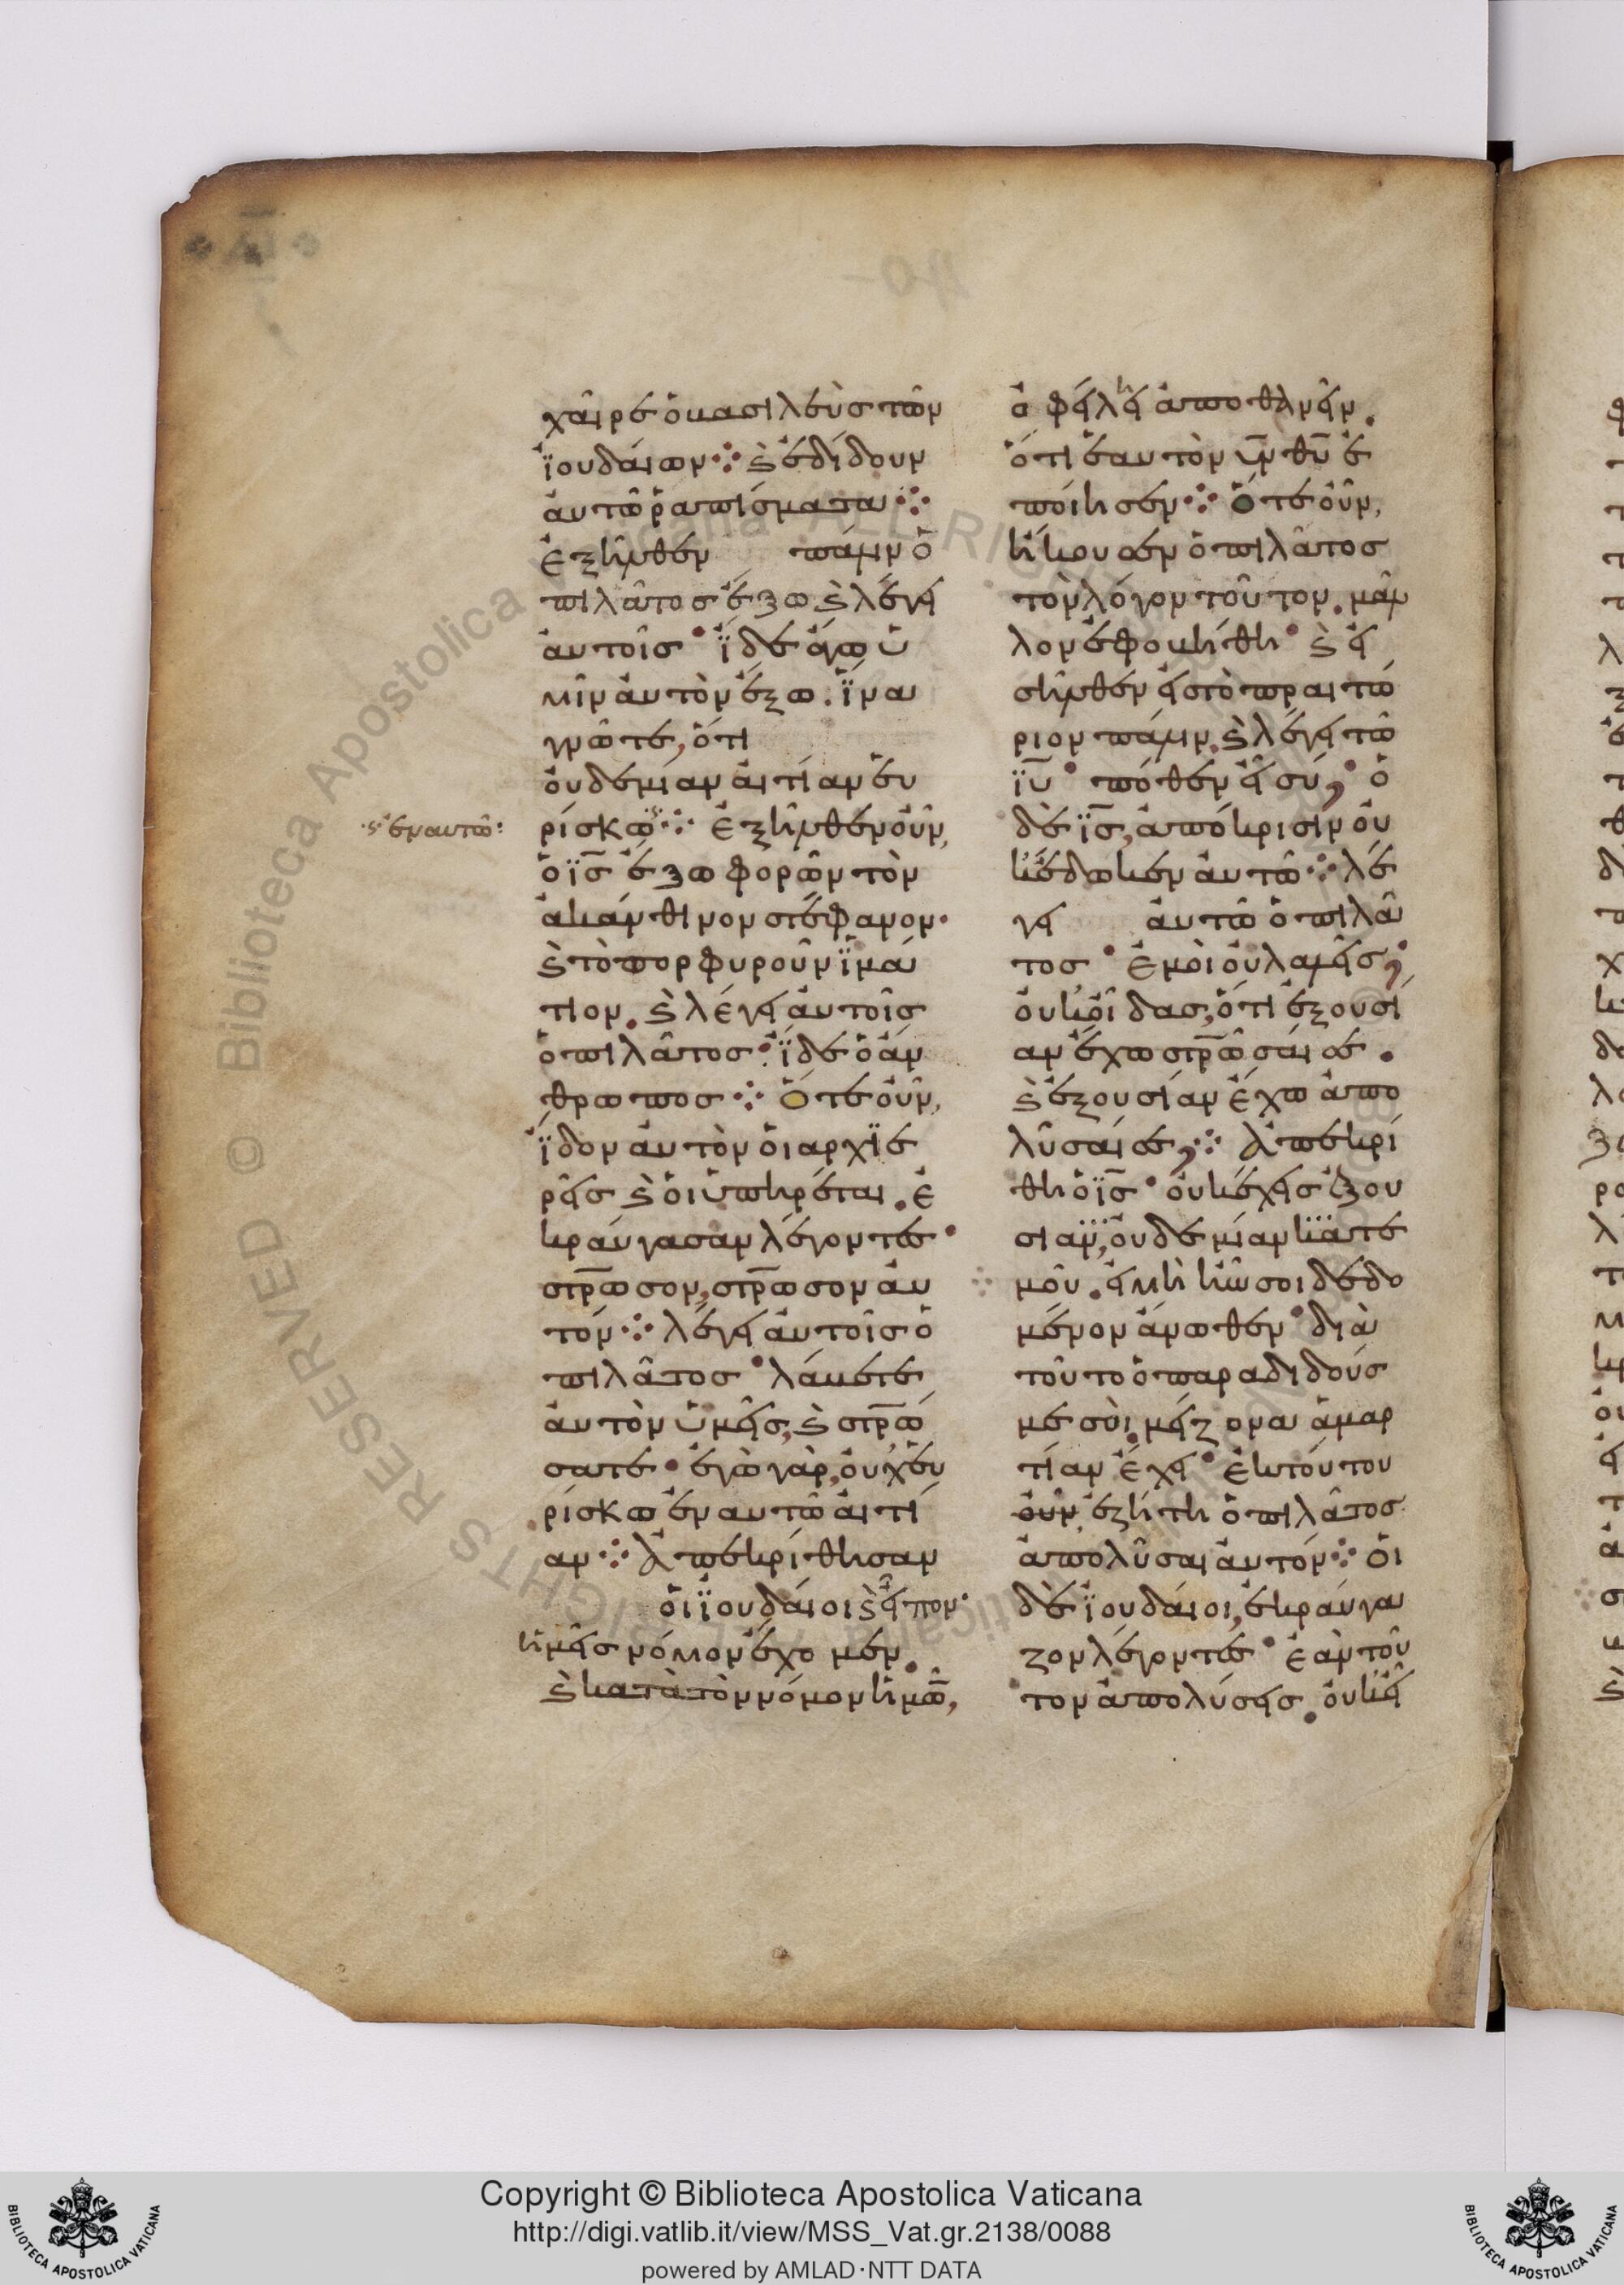 χαῖρε ὁ βασιλεὺς τῶν
ἰουδαίων ⁘ ϗ ἐδίδουν
αὐτῶ ῥαπίσματα ⁘
ἐξῆλθεν πάλιν ὁ
πιλᾶτος ἔξω ϗ λέγει
αὐτοῖς · ἴδε ἄγω ὑ
μῖν αὐτὸν ἔξω . ἵνα
γνῶτε, ὅτι
οὐδεμίαν αἰτίαν εὑ
ρίσκω ⁘ ἐξῆλθεν οὖν,
ὁ ι̅ς̅ ἔξω φορῶν τὸν
ἀκάνθινον στέφανον ·
ϗ τὸ πορφυροῦν ἱμά
τιον . ϗ λέγει αὐτοῖς
ὁ πιλᾶτος · ἴδε ὁ ἄν
θρωπος ⁘ Ὅτε οὖν,
ἴδον αὐτὸν οἱ ἀρχιε
ρεῖς ϗ οἱ ὑπηρέται . ἐ
κραύγασαν λέγοντες ·
στ̅ρ̅ωσον, στ̅ρ̅ωσον αὐ
τόν ⁘ λέγει αὐτοῖς ὁ
πιλᾶτος · λάβετε
αὐτὸν ὑμεῖς, ϗ στ̅ρ̅ώ
σατε · ἐγὼ γὰρ, οὐχ εὑ
ρίσκω ἐν αὐτῶ αἰτί
αν ⁘ Ἀπεκρίθησαν
οἱ ἰουδαῖοι ϗ εἶπον ·
ἡμεῖς νόμον ἔχομεν .
ϗ κατὰ τὸν νόμον ἡμῶ̅,
ϗ ἐν αὐτῶ :
ὀφείλει ἀποθανεῖν .
ὅτι ἑαυτὸν υ̅ν̅ θ̅υ̅ ἐ
ποίησεν ⁘ Ὅτε οὖν,
ἤκουσεν ὁ πιλᾶτος
τὸν λόγον τοῦτον . μᾶλ
λον ἐφοβήθη · ϗ εἰ
σῆλθεν εἰς τὸ πραιτώ
ριον πάλιν . ϗ λέγει τῶ
ι̅υ̅ · πόθεν εἶ σύ; · ὁ
δὲ ι̅ς̅, ἀπόκρισιν οὐ
κ ἔδωκεν αὐτῶ ⁘ λέ
γει αὐτῶ ὁ πιλᾶ
τος · ἐμοὶ οὐ λαλεῖς;
οὐκ οἶδας, ὅτι ἐξουσί
αν ἔχω στ̅ρ̅ῶσαί σε .
ϗ ἐξουσίαν ἔχω ἀπο
λῦσαί σε; ⁘ Ἀπεκρί
θη ὁ ι̅ς̅ · οὐκ εἶχες ἐξου
σίαν, οὐδεμίαν κατ ἐ
μοῦ . εἰ μὴ ἦν σοι δεδο
μένον ἄνωθεν · διὰ
τοῦτο ὁ παραδιδούς
με σοὶ . μείζονα ἁμαρ
τίαν ἔχει · ἐκ τούτου
οὖν, ἐζήτη ὁ πιλᾶτος
ἀπολῦσαι αὐτόν ⁘ οἱ
δὲ ἰουδαῖοι, ἐκραύγα
ζον λέγοντες · ἐὰν τοῦ
τον ἀπολύσεις . οὐκ εἶ
Copyright © Biblioteca Apostolica Vaticana
http://digi.vatlib.it/view/MSS_Vat.gr.2138/0088
powered by AMLAD·NTT DATA